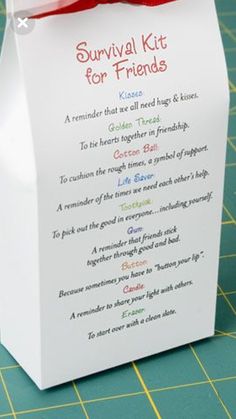 Survival Kit
for Friends
Kisses:
A reminder that we all need hugs & kisses.
Golden Thread:
To tie hearts together in friendship.
Cotton Ball:
To cushion the rough times, a symbol of support.
Life Saver:
A reminder of the times we need each other's help.
Toothpick:
To pick out the good in everyone...including yourself.
Gum:
A reminder that friends stick
together through good and bad.
Button:
Because sometimes you have to "button your lip."
Candle:
A reminder to share your light with others.
Eraser:
To start over with a clean slate.